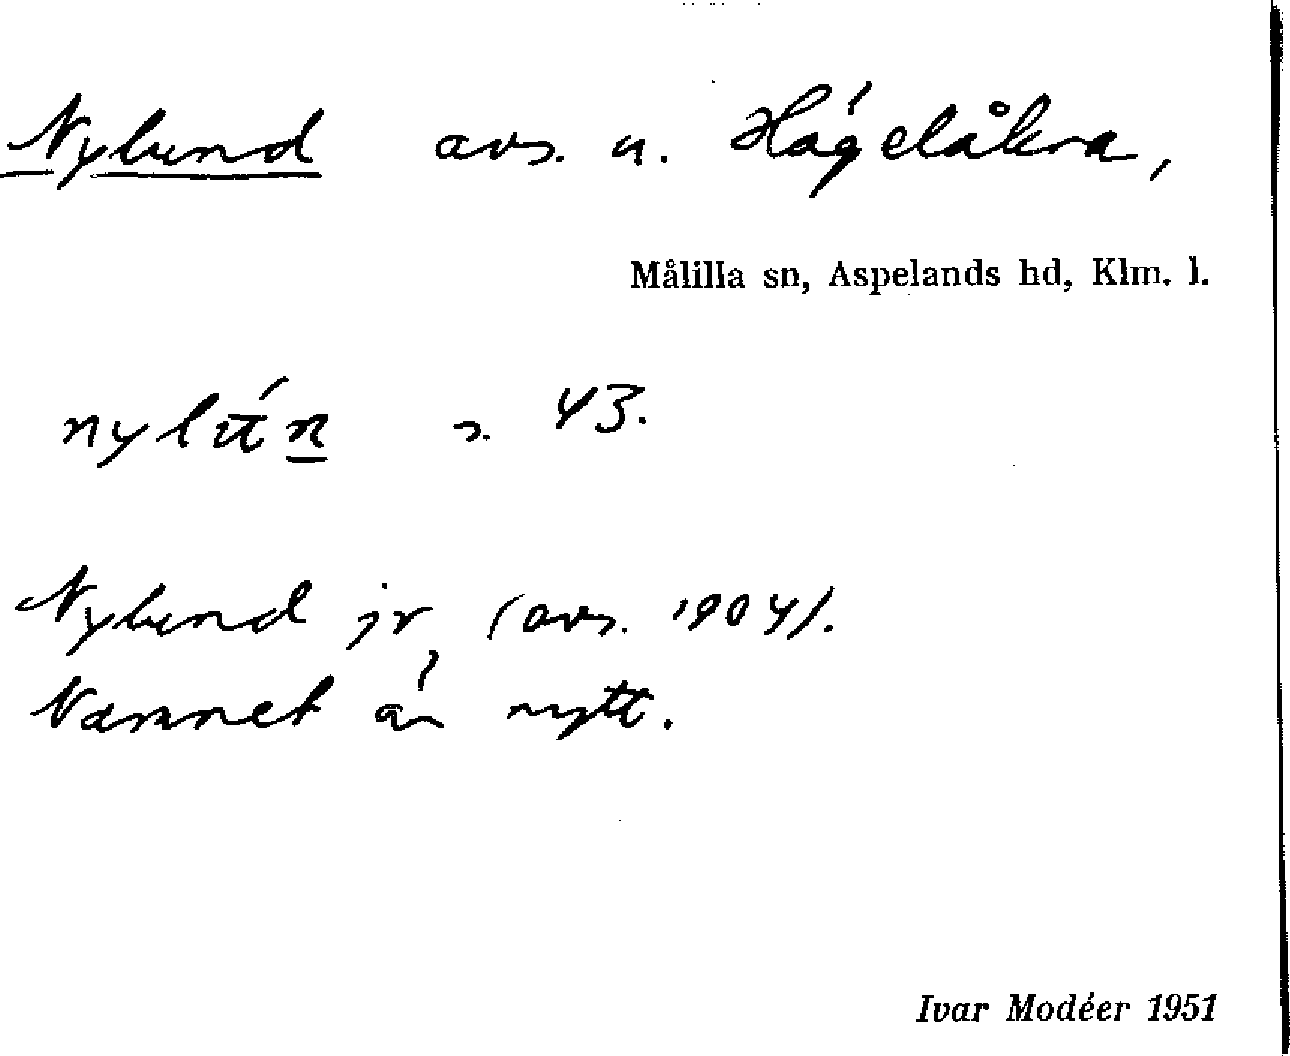 Nylund avs. u. Hägelåkra,
Målilla sn, Aspelands hd, Klm. l.
43.
Nylund jr (avs. 1904).
Namnet är nytt.
Ivar Modéer 1951